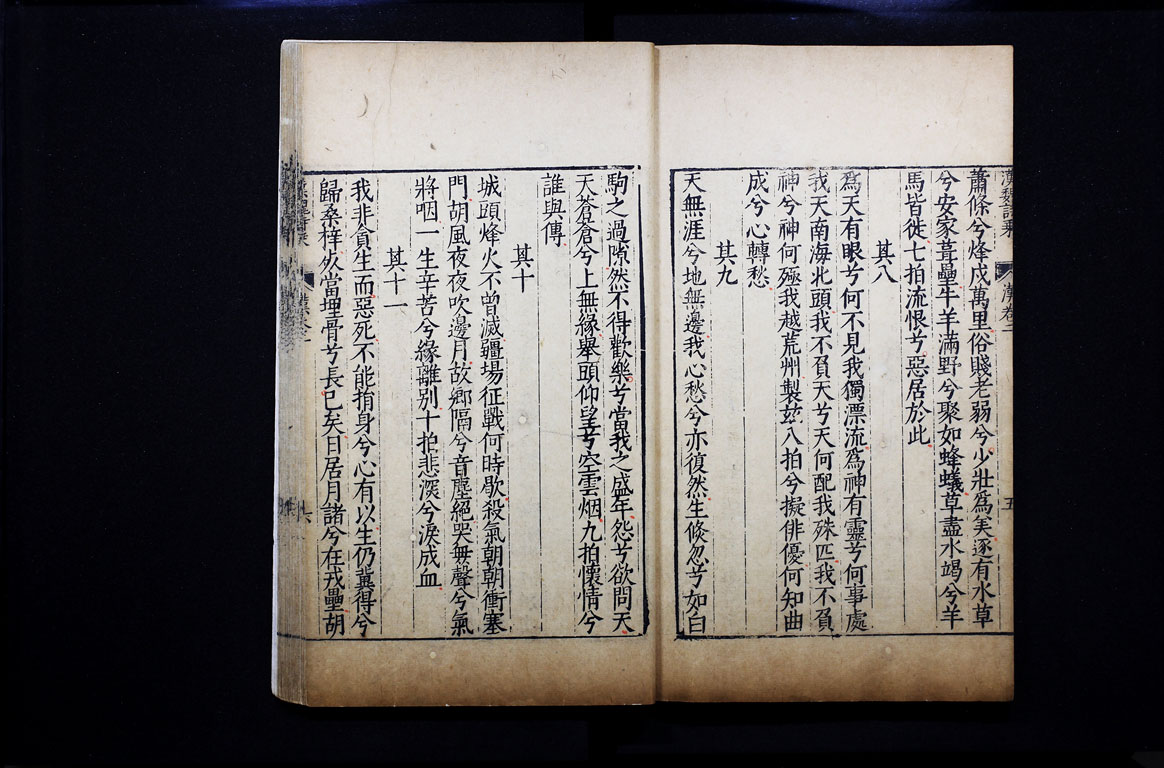 漢魏詩乗 漢卷二 五
蕭條兮烽戍萬里俗賤老弱兮少壯爲美逐有水草
兮安家葺壘牛羊滿野兮聚如蜂蟻草盡水竭兮羊
馬皆徙七拍流恨兮惡居於此
其八
爲天有眼兮何不見我獨漂流爲神有靈兮何事處
我天南海北頭我不負天兮天何配我殊匹我不負
神兮神何殛我越荒州製兹八拍兮擬俳優何知曲
成兮心轉愁
其九
天無涯兮地無邊我心愁兮亦復然生倐忽兮如白
駒之過隙然不得歡樂兮當我之盛年怨兮欲問天
天蒼蒼兮上無緣舉頭仰望兮空雲烟九拍懷情兮
誰與傳
其十
城頭烽火不曾滅疆場征戰何時歇殺氣朝朝衝塞
門胡風夜夜吹邊月故鄉隔兮音塵絕哭無聲兮氣
將咽一生辛苦兮緣離别十拍悲深兮淚成血
其十一
我非貪生而惡死不能捐身兮心有以生仍冀得兮
歸桑梓死當埋骨兮長已矣日居月諸兮在戎壘胡